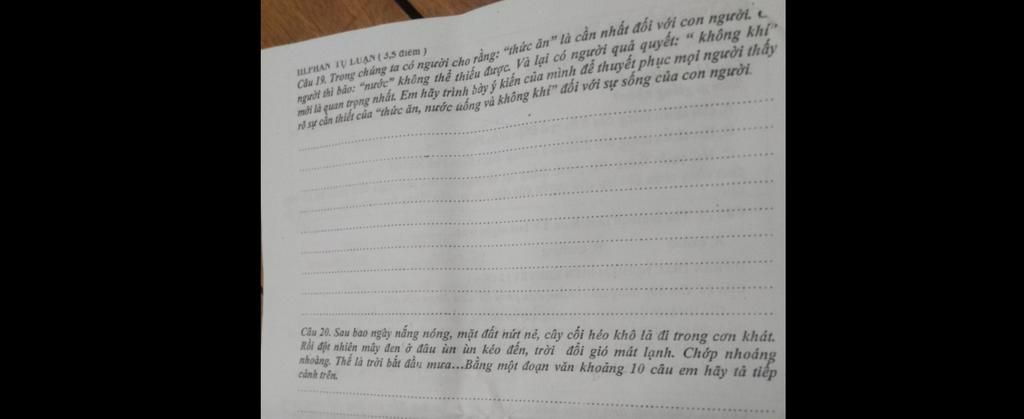 III.PHẦN TỰ LUẬN ( 5,5 điểm )
Câu 19. Trong chúng ta có người cho rằng: "thức ăn" là cần nhất đối với con người.
người thì bảo: "nước" không thể thiếu được. Và lại có người quả quyết: " không khí"
mới là quan trọng nhất. Em hãy trình bày ý kiến của mình để thuyết phục mọi người thấy
rõ sự cần thiết của "thức ăn, nước uống và không khí" đối với sự sống của con người.
Câu 20. Sau bao ngày nắng nóng, mặt đất nứt nẻ, cây cối héo khô lả đi trong cơn khát.
Rồi đột nhiên mây đen ở đâu ùn ùn kéo đến, trời đổi gió mát lạnh. Chớp nhoáng
nhoàng. Thế là trời bắt đầu mưa...Bằng một đoạn văn khoảng 10 câu em hãy tả tiếp
cảnh trên.